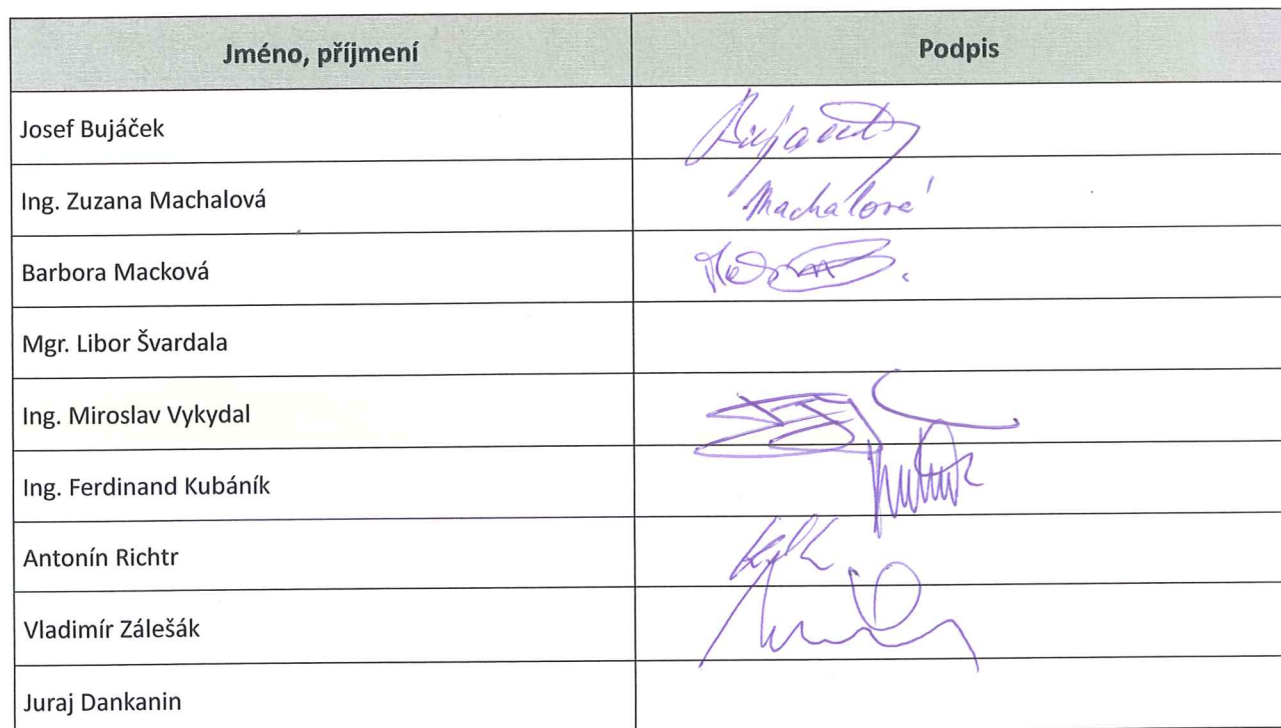 Jméno, příjmení Podpis
Josef Bujáček
Ing. Zuzana Machalová Machalová
Barbora Macková
Mgr. Libor Švardala
Ing. Miroslav Vykydal
Ing. Ferdinand Kubáník
Antonín Richtr
Vladimír Zálešák
Juraj Dankanin